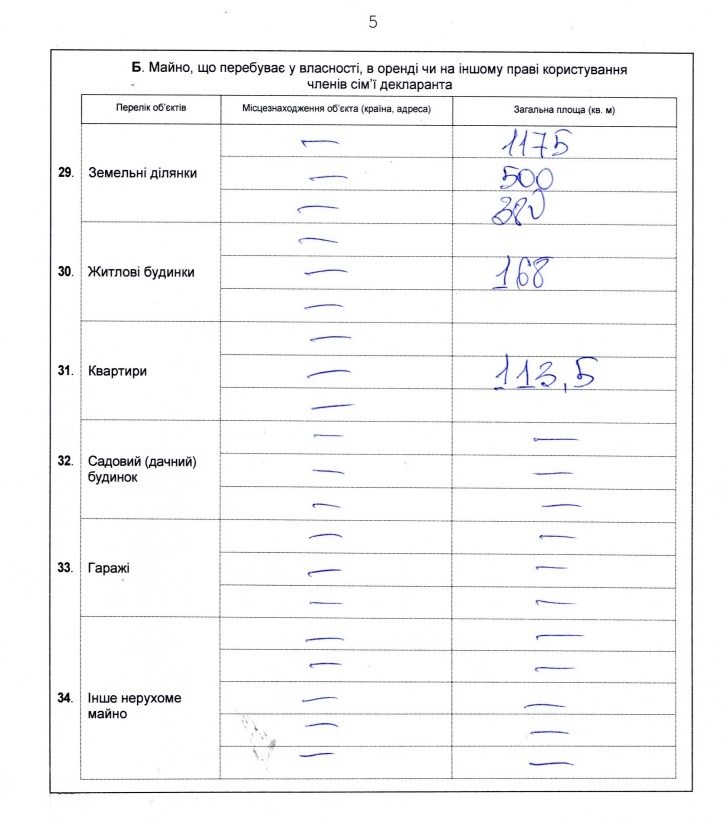 5
Б. Майно, що перебуває у власності, в оренді чи на іншому праві користування
членів сім'ї декларанта
Перелік об'єктів Місцезнаходження об'єкта (країна, адреса) Загальна площа (кв. м)
— 1175
29. Земельні ділянки — 500
—
—
30. Житлові будинки — 168
—
—
31. Квартири — 113,5
—
— —
32. Садовий (дачний)
будинок — —
— —
— —
33. Гаражі — —
— —
— —
— —
34. Інше нерухоме
майно — —
— —
— —